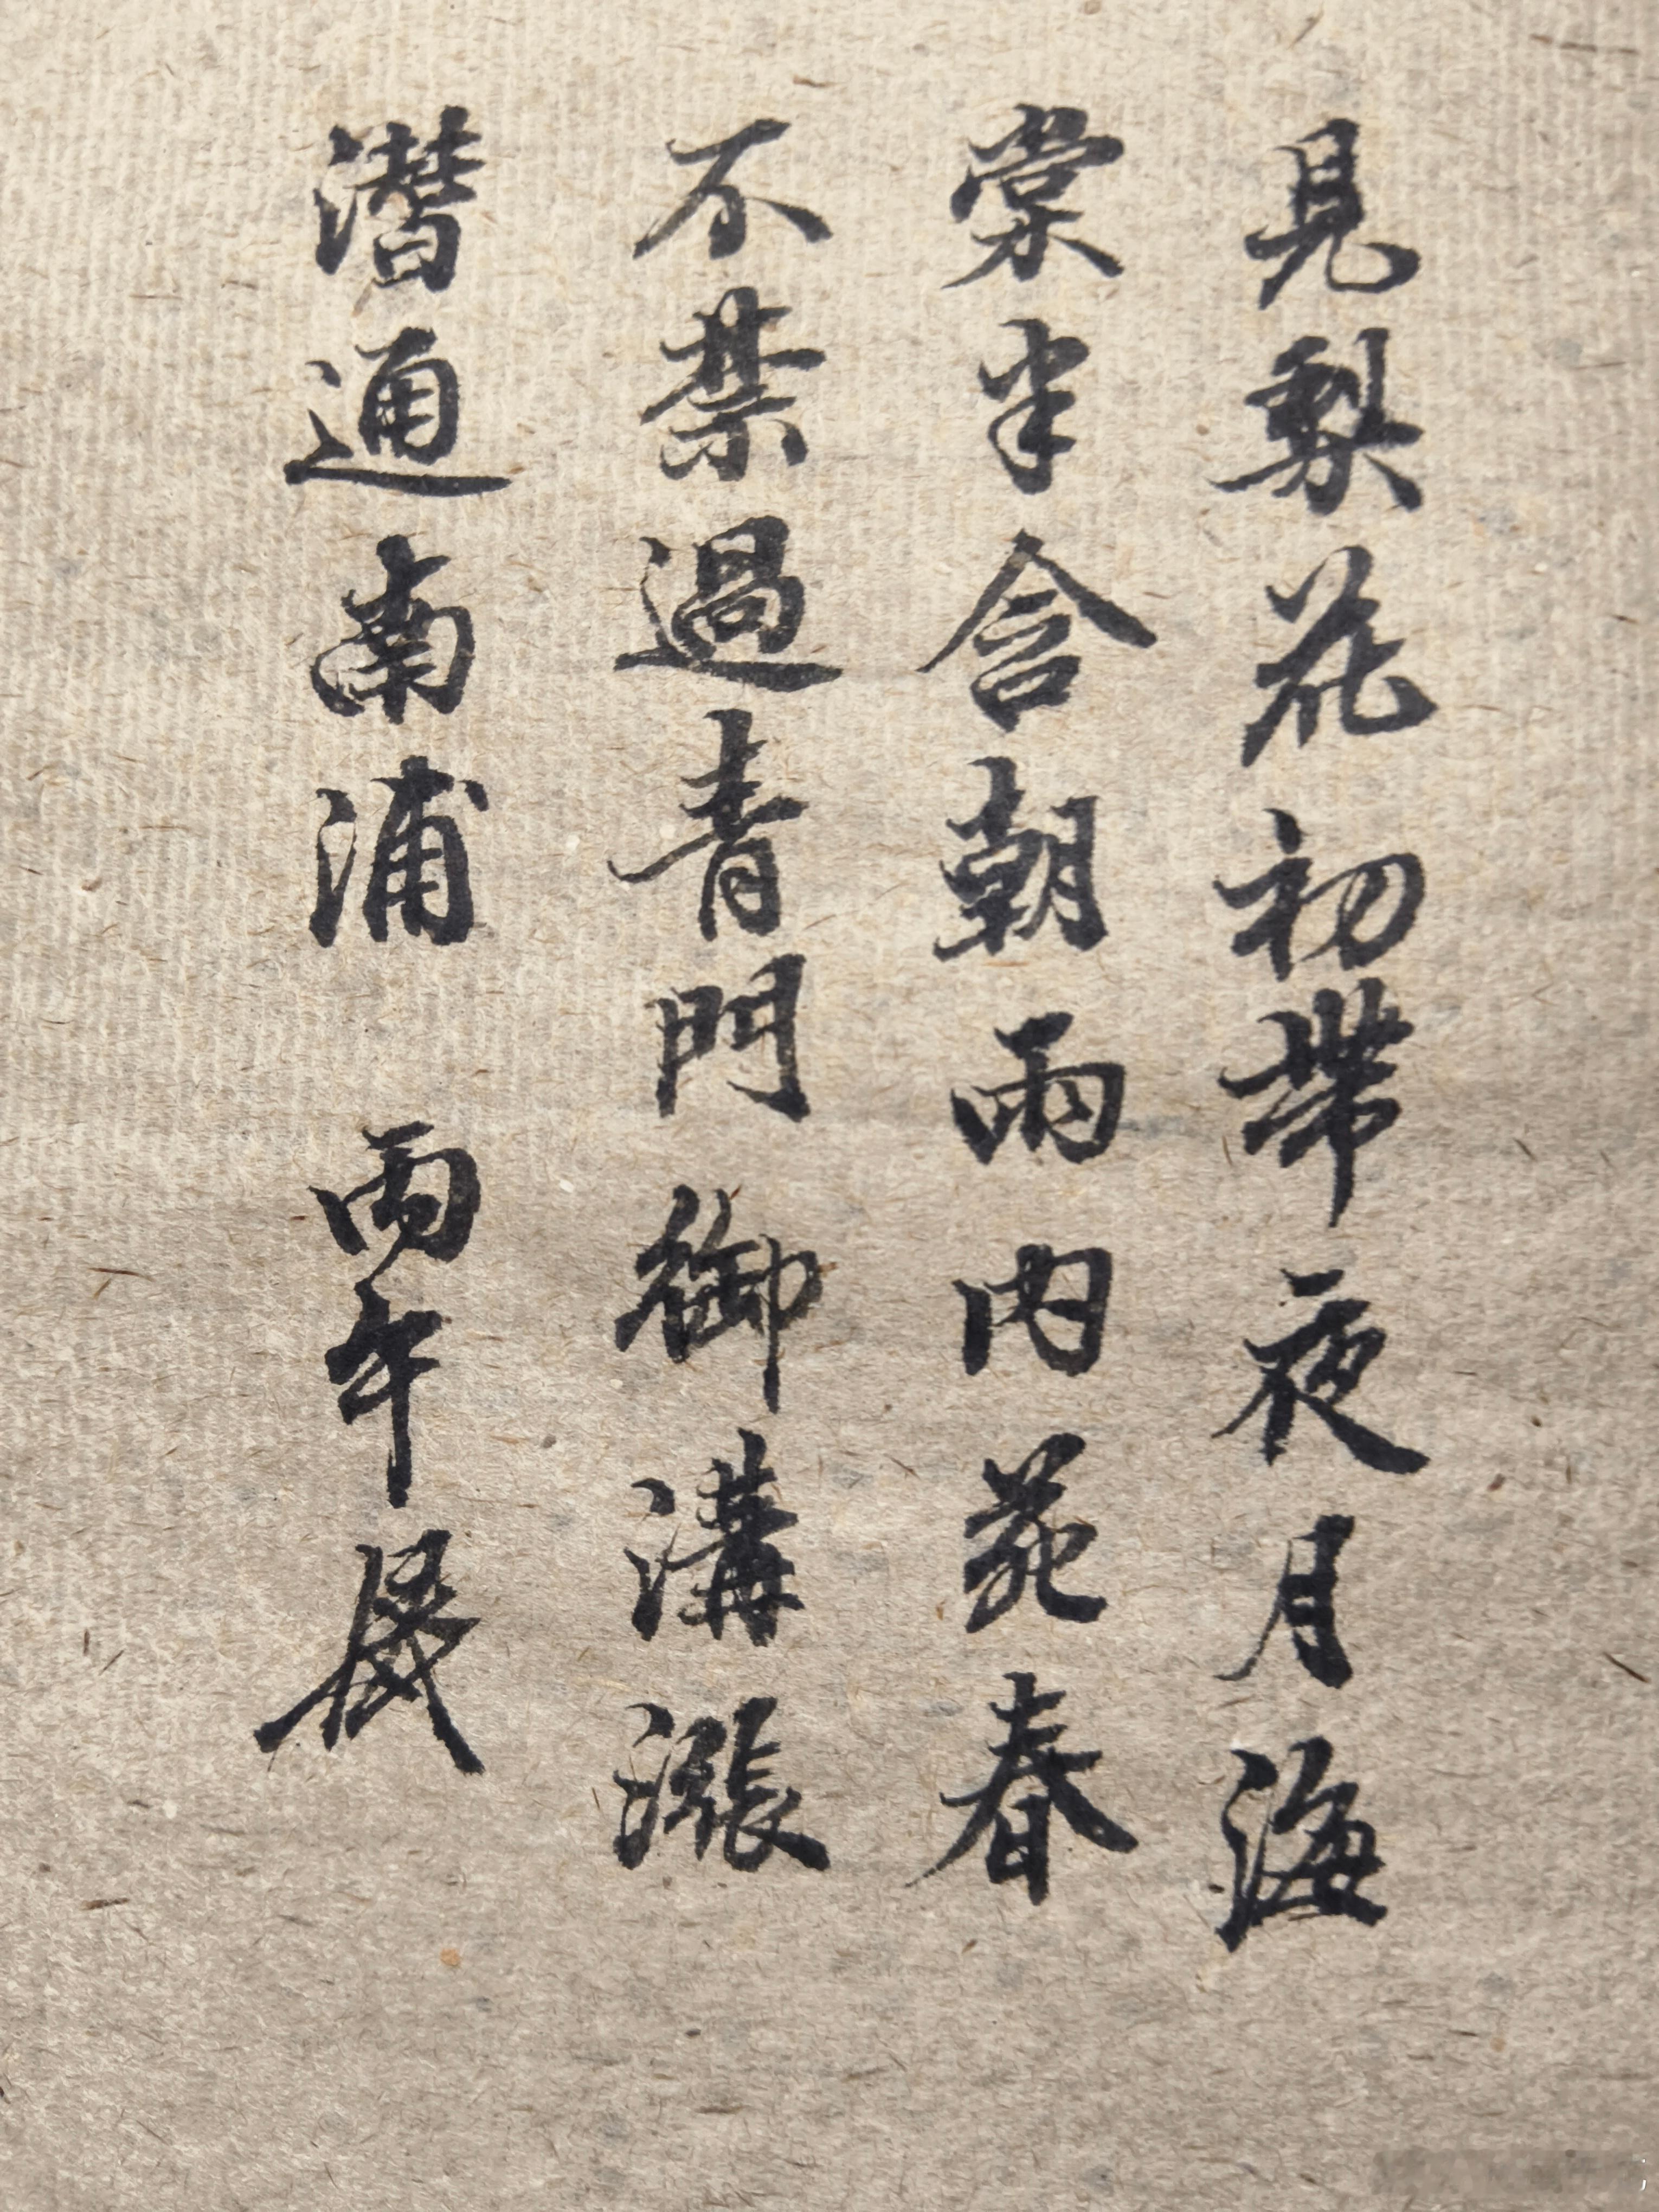 見梨花初帶夜月海
棠半含朝雨内苑春
不禁過青門御溝漲
潛通南浦 丙午晟